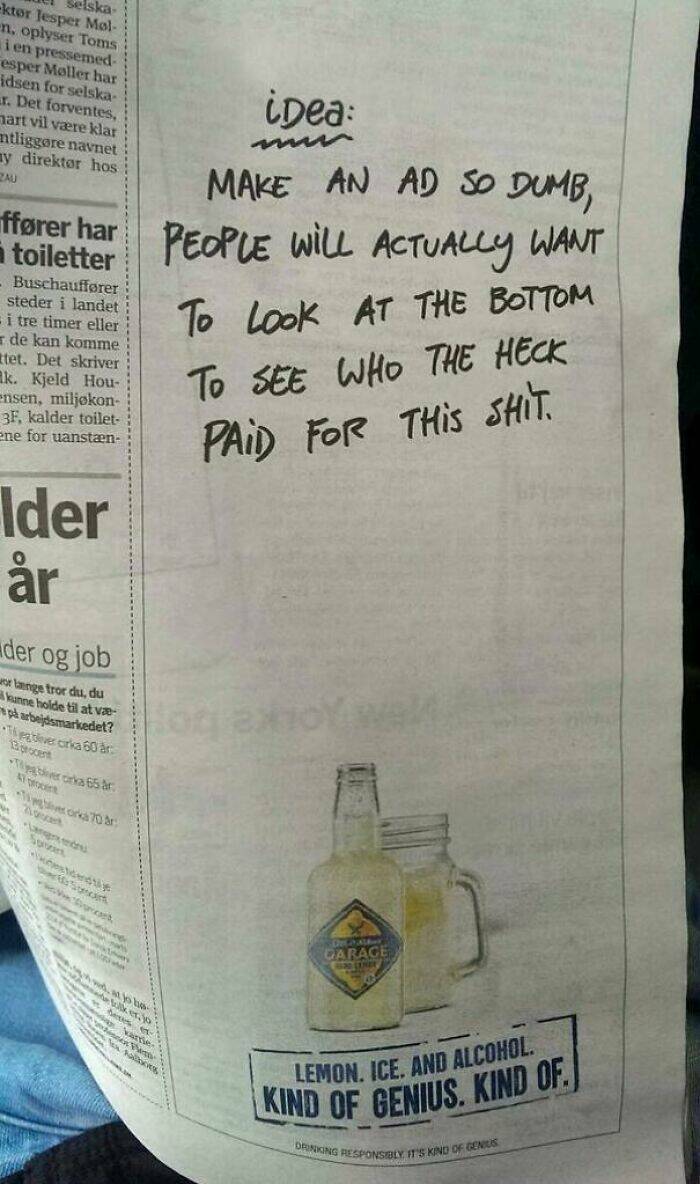 selska-
ktør Jesper Møl-
n, oplyser Toms
i en pressemed-
esper Møller har
idsen for selska-
r. Det forventes,
nart vil være klar
ntliggøre navnet
ny direktør hos
ZAU
ffører har
toiletter
Buschauffører
steder i landet
i tre timer eller
r de kan komme
ttet. Det skriver
lk. Kjeld Hou-
ensen, miljøkon-
3F, kalder toilet-
ene for uanstæn-
lder
år
lder og job
vor længe tror du, du
kunne holde til at væ-
på arbejdsmarkedet?
• Til jeg bliver cirka 60 år:
13 procent
• Til jeg bliver cirka 65 år:
47 procent
• Til jeg bliver cirka 70 år:
procent
Længere endnu
5 procent
iDea:
MAKE AN AD SO DUMB,
PEOPLE WiLL ACTUALLY WANT
To LOOK AT THE BOTTOM
To SEE WHO THE HECK
PAiD FOR THiS SHiT.
GARAGE
LEMON. ICE. AND ALCOHOL.
KIND OF GENIUS. KIND OF.
DRINKING RESPONSIBLY. IT'S KIND OF GENIUS.